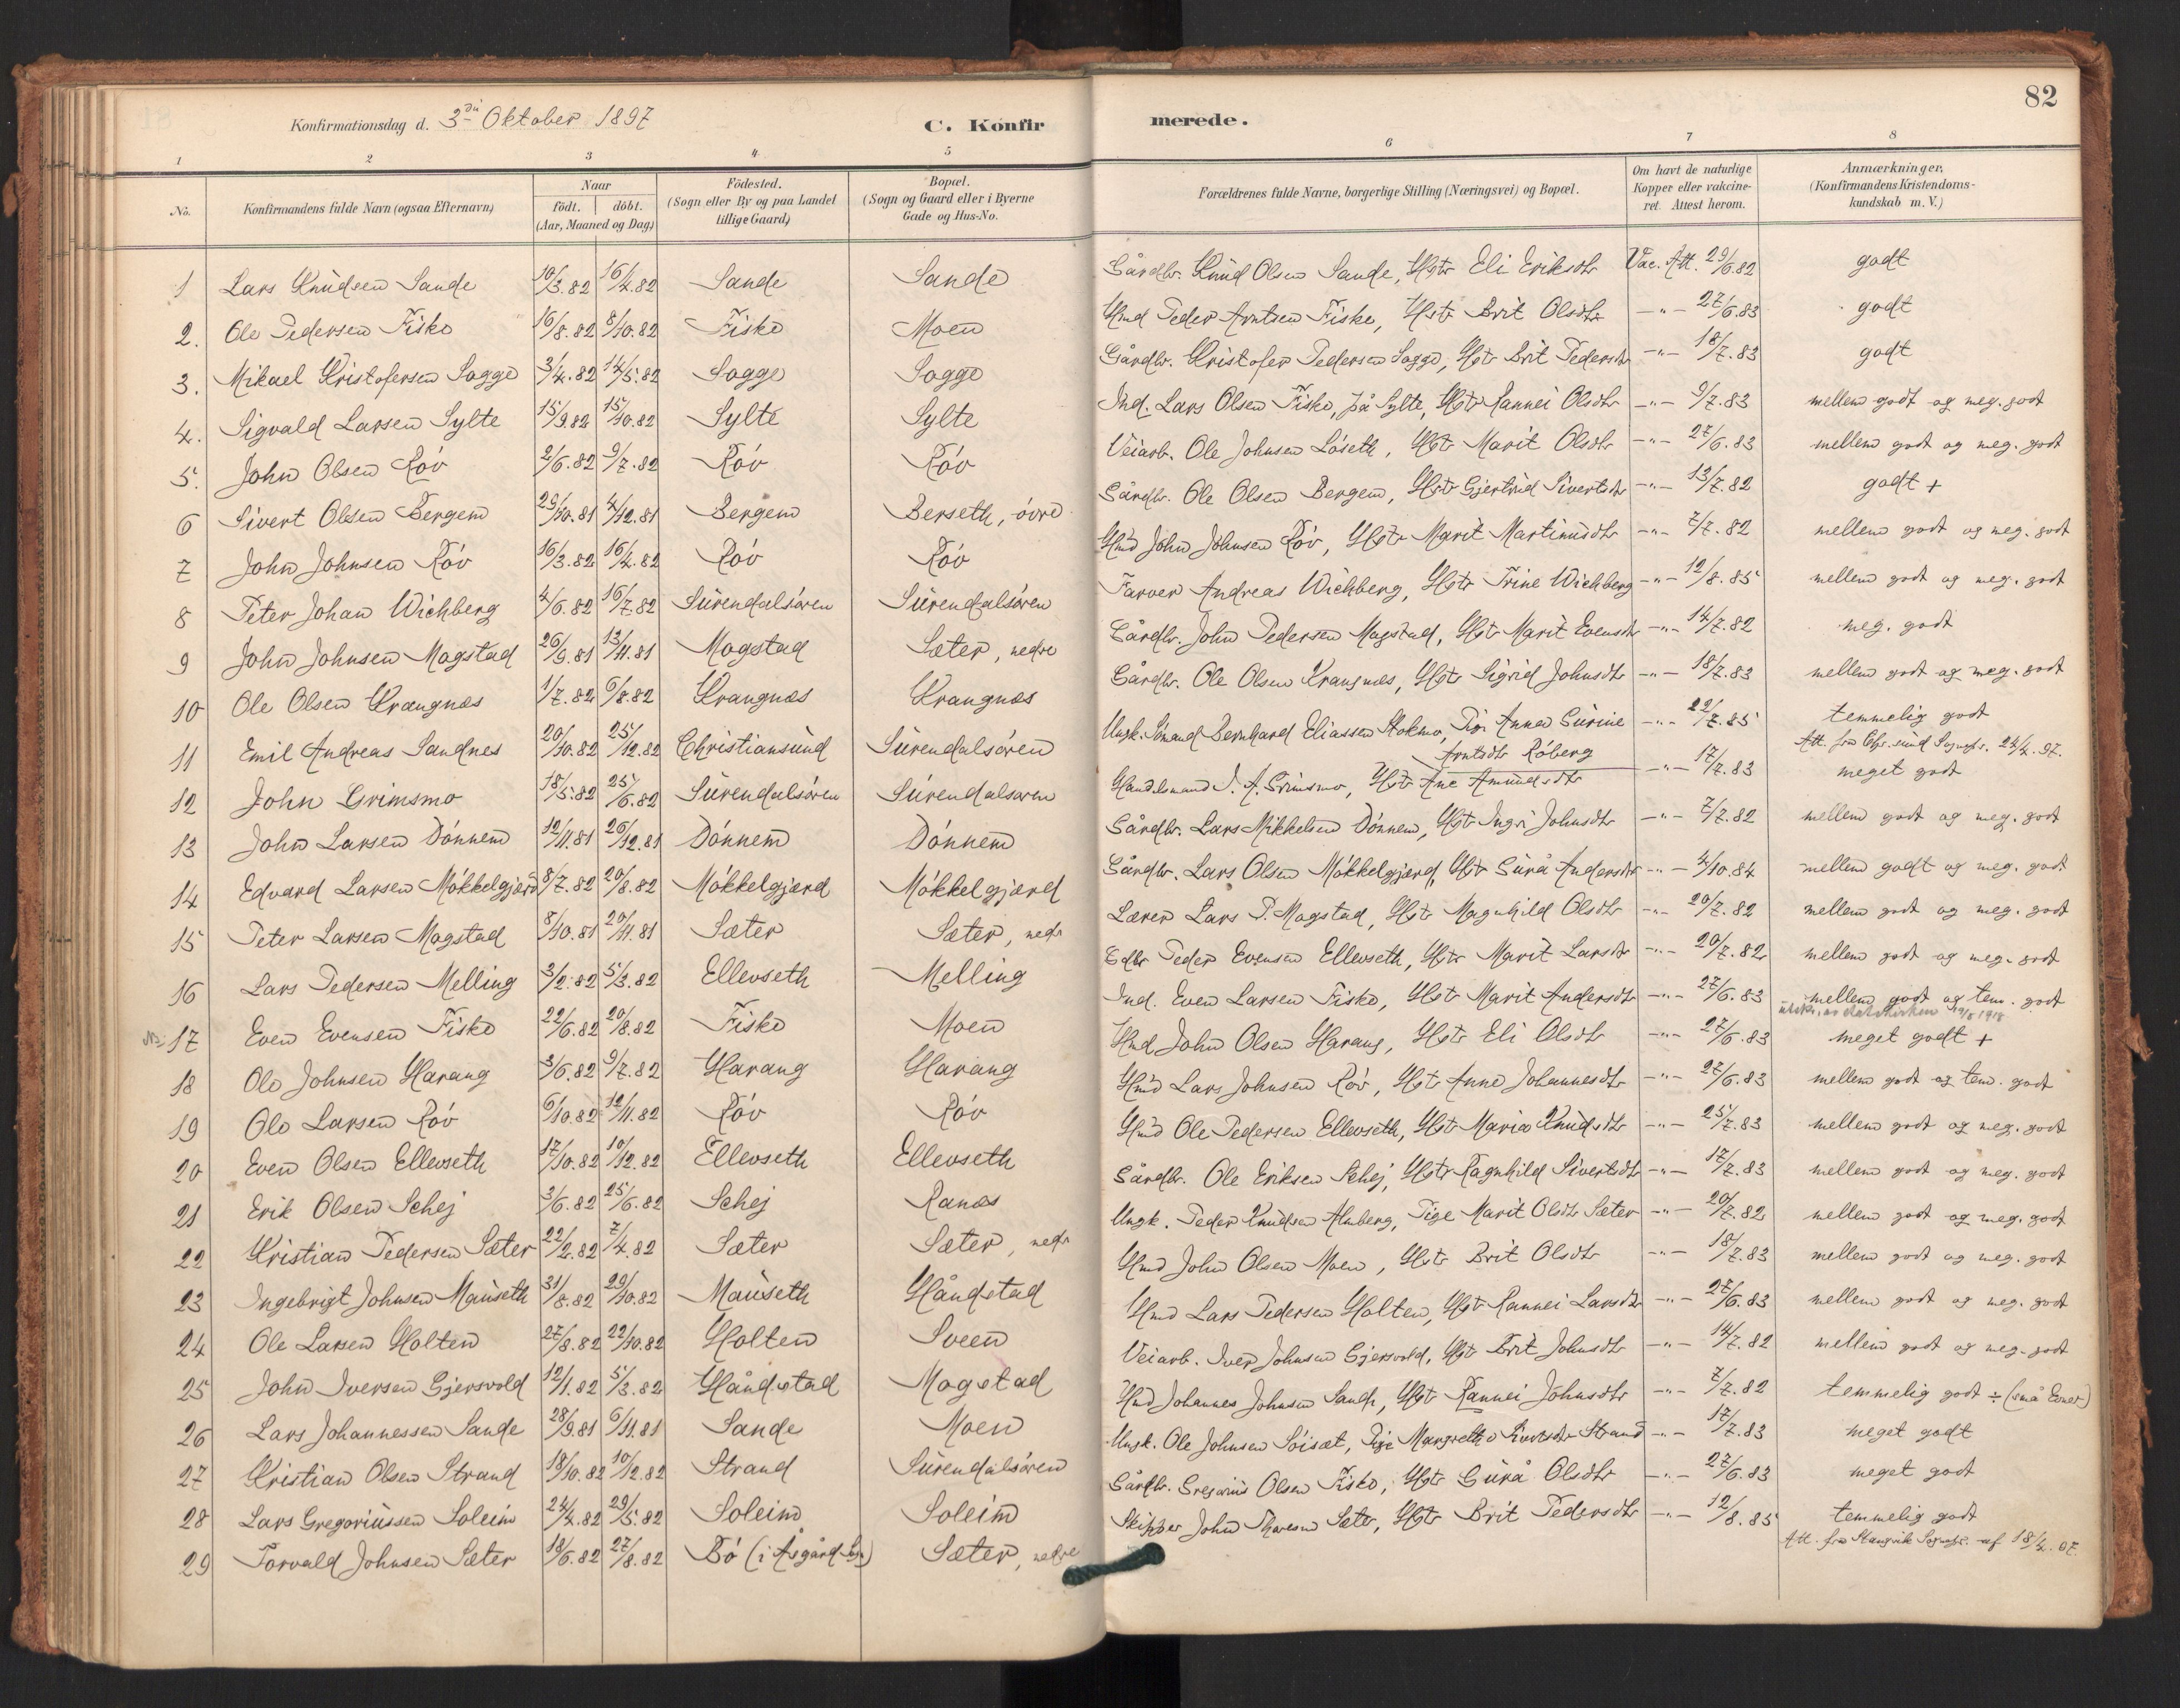 82
Konfirmationsdag d. 3die Oktober 1897 C. Konfir merede.
1 2 3 4 5 6 7 8
No. Konfirmandens fulde Navn (ogsaa Efternavn) Naar födt. döbt. (Aar, Maaned og Dag) Födested. (Sogn eller By og paa Landet tillige Gaard) Bopæl. (Sogn og Gaard eller i Byerne Gade og Hus-No. Forældrenes fulde Navne, borgerlige Stilling (Næringsvei) og Bopæl. Om havt de naturlige Kopper eller vakcineret. Attest herom. Anmærkninger. (Konfirmandens Kristendomskundskab m. V.)
1 Lars Knudsen Sande 10/3.82 16/4.82 Sande Sande Gårdbr. Knud Olsen Sande, Hstr Eli Eriksdtr Vac. Att. 29/6.82 godt
2. Ole Pedersen Fiske 16/8.82 8/10.82 Fiske Moen Hmd Peder Arntsen Fiske, Hstr Brit Olsdtr -"- 27/6.83 godt
3. Mikael Kristofersen Sogge 3/4.82 14/5.82 Sogge Sogge Gårdbr. Kristofer Pedersen Sogge, Hstr Brit Pedersdtr -"- 18/7.83 godt
4. Sigvald Larsen Sylte 15/9.82 15/10.82 Sylte Sylte Ind. Lars Olsen Fiske, på Sylte, Hstr Rannei Olsdtr -"- 9/7.83 mellem godt og meg. godt
5. John Olsen Röv 2/6.82 9/7.82 Röv Röv Veiarb. Ole Johnsen Löseth, Hstr Marit Olsdtr -"- 27/6.83 mellem godt og meg. godt
6 Sivert Olsen Bergem 29/10.81 4/12.81 Bergem Berseth, övre Gårdbr. Ole Olsen Bergem, Hstr Gjertrud Sivertsdtr -"- 13/7.82 godt +
7 John Johnsen Röv 16/3.82 16/4.82 Röv Röv Hmd John Johnsen Röv, Hstr Marit Martinusdtr -"- 7/7.82 mellem godt og meg. godt
8 Peter Johan Wichberg 4/6.82 16/7.82 Surendalsören Surendalsören Farver Andreas Wichberg, Hstr Trine Wichberg -"- 12/8.85 mellem godt og meg. godt
9 John Johnsen Mogstad 26/9.81 13/11.81 Mogstad Sæter, nedre Gårdbr. John Pedersen Mogstad, Hstr Marit Evensdtr -"- 14/7.82 meg. godt
10 Ole Olsen Krangnæs 1/7.82 6/8.82 Krangnæs Krangnæs Gårdbr. Ole Olsen Krangnæs, Hstr Sigrid Johnsdtr -"- 18/7.83 mellem godt og meg. godt
11 Emil Andreas Sandnes 20/10.82 25/12.82 Christiansund Surendalsören Ungk. Sömand Bernhard Eliassen Stokmo, Pige Anne Gurine Arntsdtr Röberg -"- 22/7.85 temmelig godt
Att. fra Chr.sund Sognepr. 24/4.97.
12 John Grimsmo 18/5.82 25/6.82 Surendalsören Surendalsören Handelsmand J. A. Grimsmo, Hstr Ane Amundsdtr -"- 17/7.83 meget godt
13 John Larsen Dönnem 12/11.81 26/12.81 Dönnem Dönnem Gårdbr. Lars Mikkelsen Dönnem, Hstr Ingri Johnsdtr -"- 7/7.82 mellem godt og meg. godt
14 Edvard Larsen Mökkelgjerd 8/7.82 20/8.82 Mökkelgjærd Mökkelgjærd Gårdbr. Lars Olsen Mökkelgjærd, Hstr Gurå Andersdtr -"- 4/10.84 mellem godt og meg. godt
15 Peter Larsen Mogstad 8/10.81 20/11.81 Sæter Sæter, nedr Lærer Lars P. Mogstad, Hstr Magnhild Olsdtr -"- 20/7.82 mellem godt og meg. godt
16 Lars Pedersen Melling 3/2.82 5/3.82 Ellevseth Melling Gdbr. Peder Evensen Ellevseth, Hstr Marit Larsdtr -"- 20/7.82 mellem godt og meg. godt
17 Even Evensen Fiske 22/6.82 20/8.82 Fiske Moen Ind. Even Larsen Fiske, Hstr Marit Andersdtr -"- 27/6.83 mellem godt og tem. godt
18 Ole Johnsen Harang 3/6.82 9/7.82 Harang Harang Hmd John Olsen Harang, Hstr Eli Olsdtr -"- 27/6.83 meget godt +
19 Ole Larsen Röv 6/10.82 12/11.82 Röv Röv Hmd Lars Johnsen Röv, Hstr Anne Johannesdtr -"- 27/6.83 mellem godt og tem. godt
20 Even Olsen Ellevseth 17/10.82 10/12.82 Ellevseth Ellevseth Hmd Ole Pedersen Ellevseth, Hstr Maria Knudsdtr -"- 25/7.83 mellem godt og meg. godt
21 Erik Olsen Schej 3/6.82 25/6.82 Schej Ranæs Gårdbr. Ole Eriksen Schej, Hstr Ragnhild Sivertsdtr -"- 17/7.83 mellem godt og meg. godt
22 Kristian Pedersen Sæter 22/2.82 7/4.82 Sæter Sæter, nedr Ungk. Peder Knudsen Almberg, Pige Marit Olsdtr Sæter -"- 20/7.82 mellem godt og meg. godt
23 Ingebrigt Johnsen Mauseth 31/8.82 29/10.82 Mauseth Håndstad Hmd John Olsen Moen, Hstr Brit Olsdtr -"- 18/7.83 mellem godt og meg. godt
24 Ole Larsen Holten 27/8.82 22/10.82 Holten Sveen Hmd Lars Pedersen Holten, Hstr Rannei Larsdtr -"- 27/6.83 mellem godt og meg. godt
25 John Iversen Gjersvold 12/1.82 5/3.82 Håndstad Mogstad Veiarb. Iver Johnsen Gjersvold, Hstr Brit Johnsdtr -"- 14/7.82 mellem godt og meg. godt
26 Lars Johannessen Sande 28/9.81 6/11.81 Sande Moen Hmd Johannes Johnsen Sande, Hstr Rannei Johnsdtr -"- 7/7.82 temmelig godt ÷ (små Evner)
27 Kristian Olsen Strand 18/10.82 10/12.82 Strand Surendalsören Ungk. Ole Johnsen Söisæt, Pige Margrethe Sivertsdtr Strand -"- 17/7.83 meget godt
28 Lars Gregoriussen Soleim 24/4.82 29/5.82 Soleim Soleim Gårdbr. Gregorius Olsen Fiske, Hstr Gurå Olsdtr -"- 27/6.83 meget godt
29 Torvald Johnsen Sæter 18/6.82 27/8.82 Bö (i Åsgård Sogn) Sæter, nedre Skipper John Thoresen Sæter, Hstr Brit Pedersdtr -"- 12/8.85 temmelig godt
Att. fra Stangvik Sognepr. af 18/4.97.